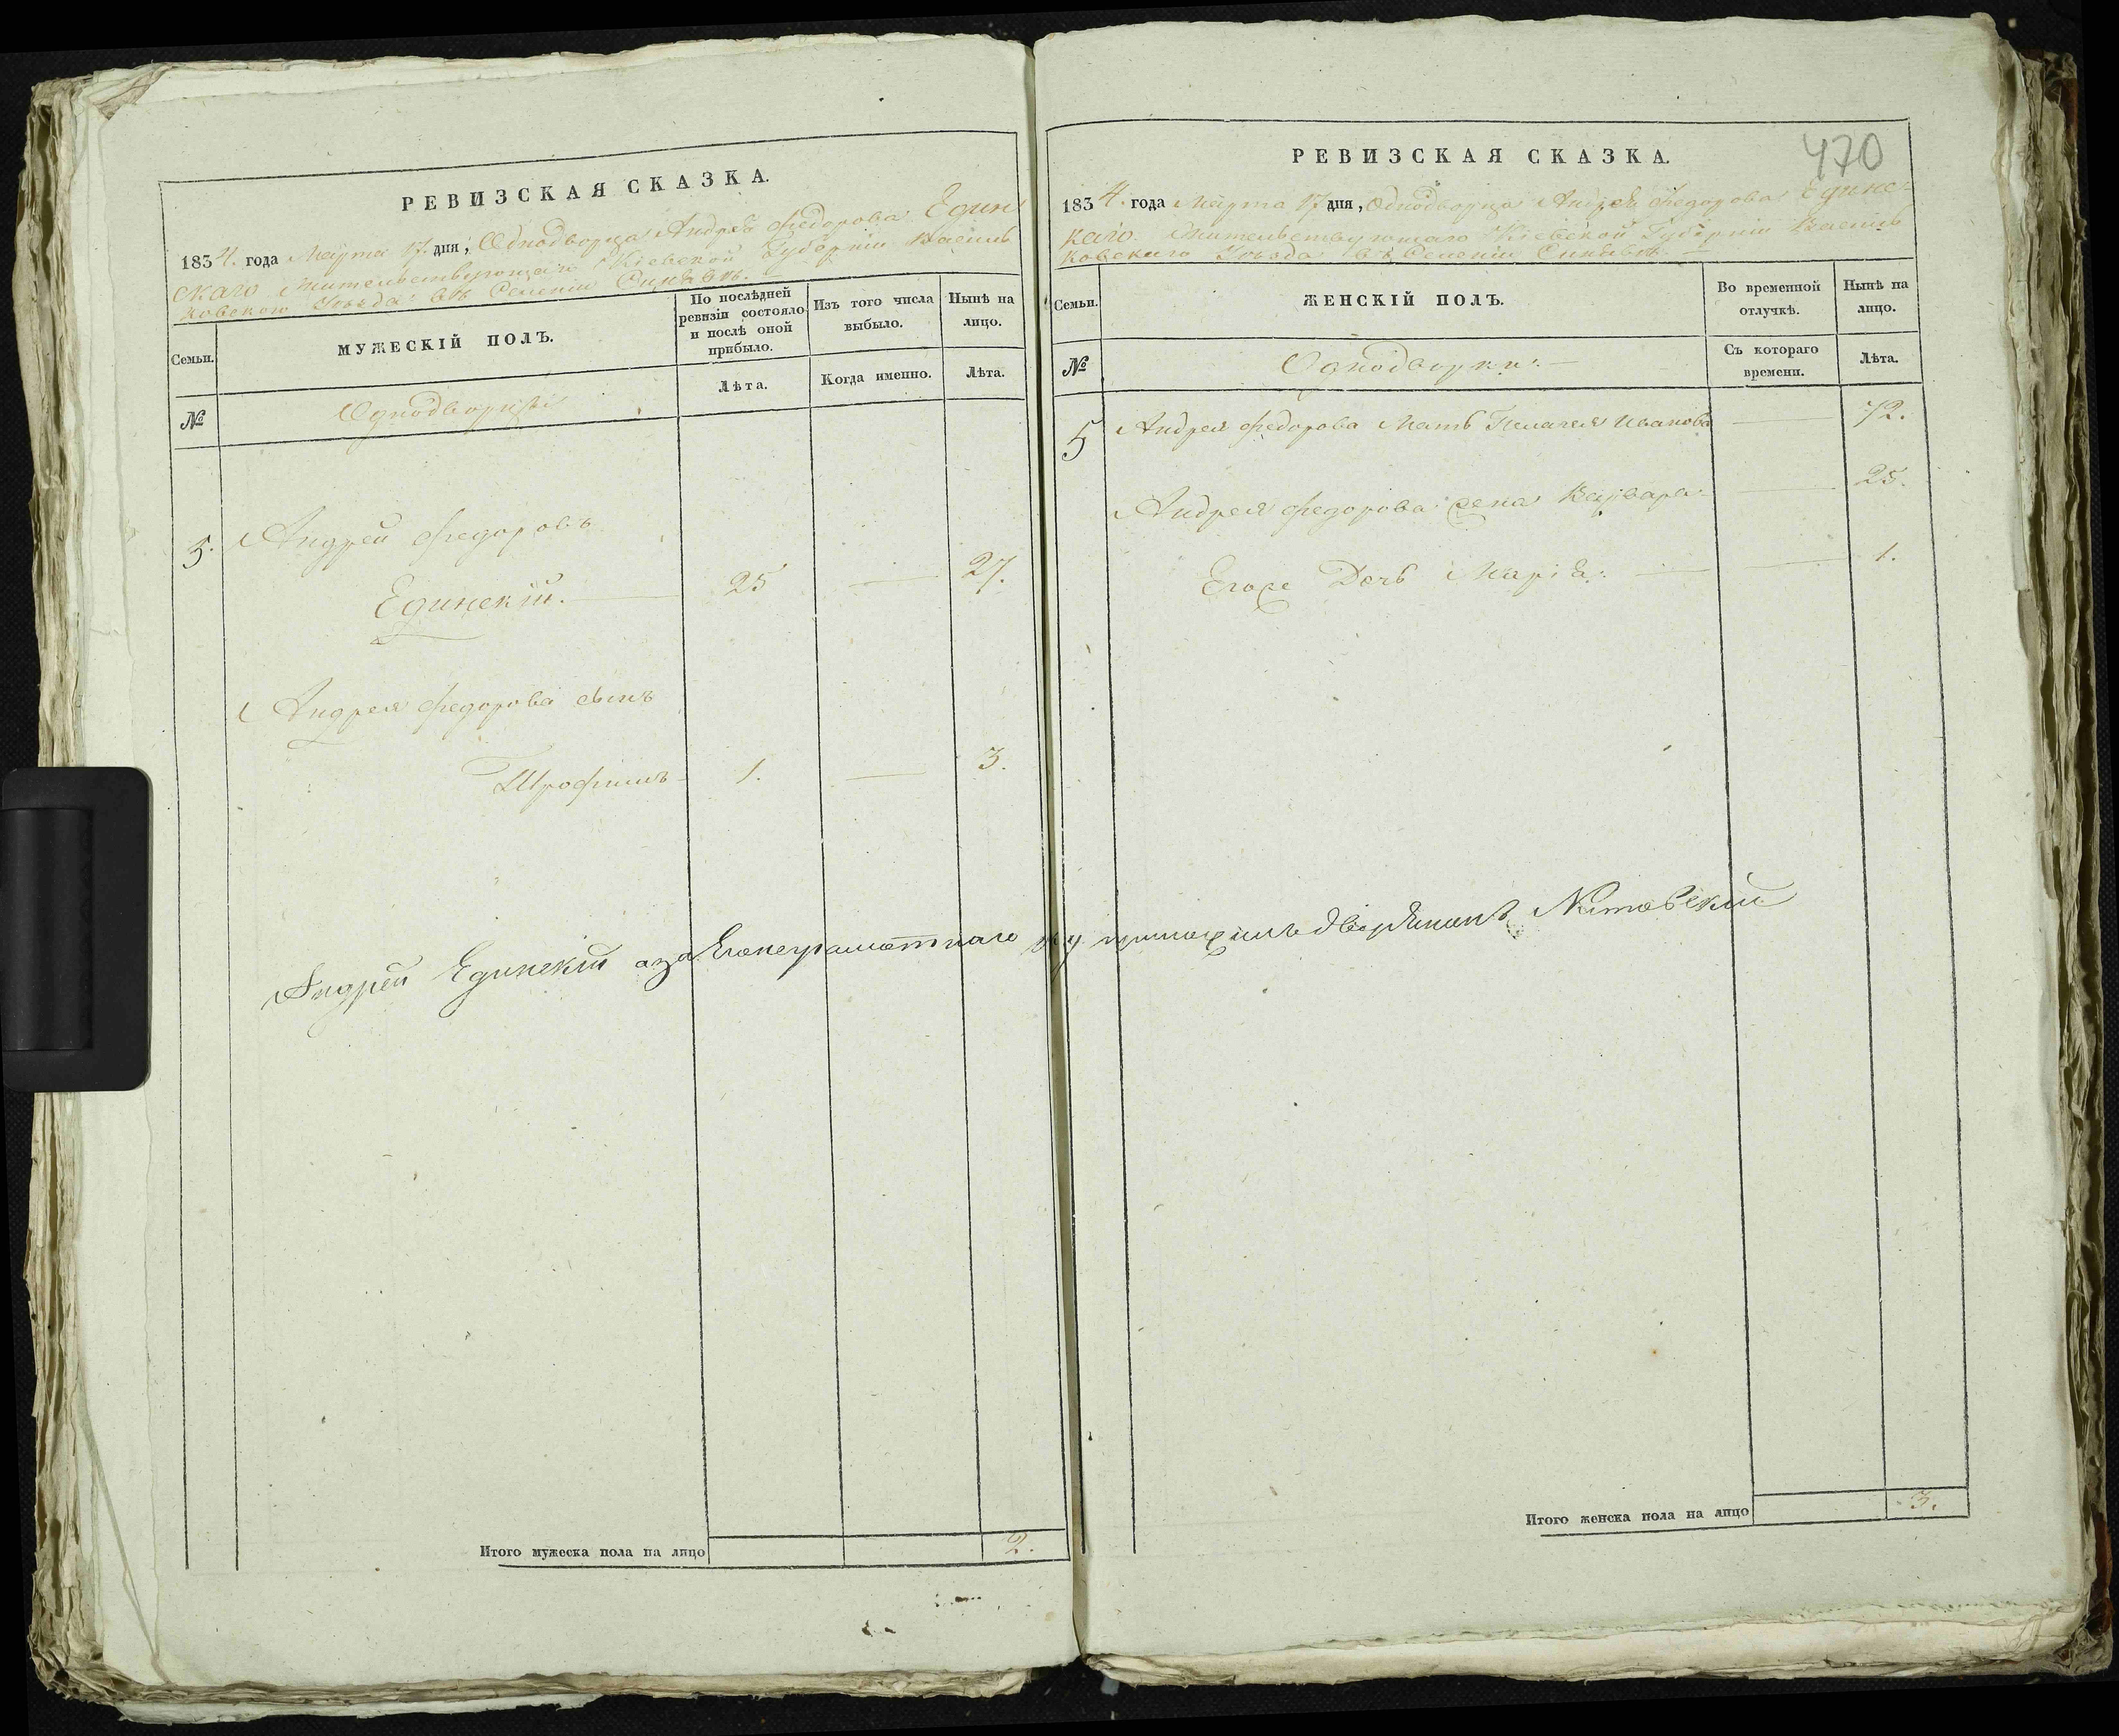 РЕВИЗСКАЯ СКАЗКА.
1834. года Марта 17. дня, Однодворца Андрея Федорова Един
скаго Жительствующаго Кіевской Губерніи Василь
ковского Уезда въ Селеніи Синявъ.
Семьи.
МУЖЕСКІЙ ПОЛЪ.
По послѣдней
ревизіи состояло
и послѣ оной
прибыло.
Изъ того числа
выбыло.
Нынѣ на
лицо.
№
Однодворцы
Лѣта.
Когда именно.
Лѣта.
5. Андрей Федоровъ
Единскій. 25 27.
Андрея Федорова сынъ
Трофимъ 1. 3.
Итого мужеска пола на лицо 2.
470
РЕВИЗСКАЯ СКАЗКА.
1834. года Марта 17 дня, Однодворца Андрея Федорова Едине
каго. Жительствующаго Кіевской Губерніи Василь
ковскаго Уезда въ Селеніи Синявъ.
Семьи.
ЖЕНСКІЙ ПОЛЪ.
Во временной
отлучкѣ.
Нынѣ на
лицо.
№
Однодворки:
Съ котораго
времени.
Лѣта.
5 Андрея Федорова Мать Иванова 72.
Андрея Федорова жена Варвара: 25.
Егоже Дочь Марія: 1.
Андрей Единскій а за Его неграмотнаго руку приложилъ дворянинъ
Итого женска пола на лицо 3.